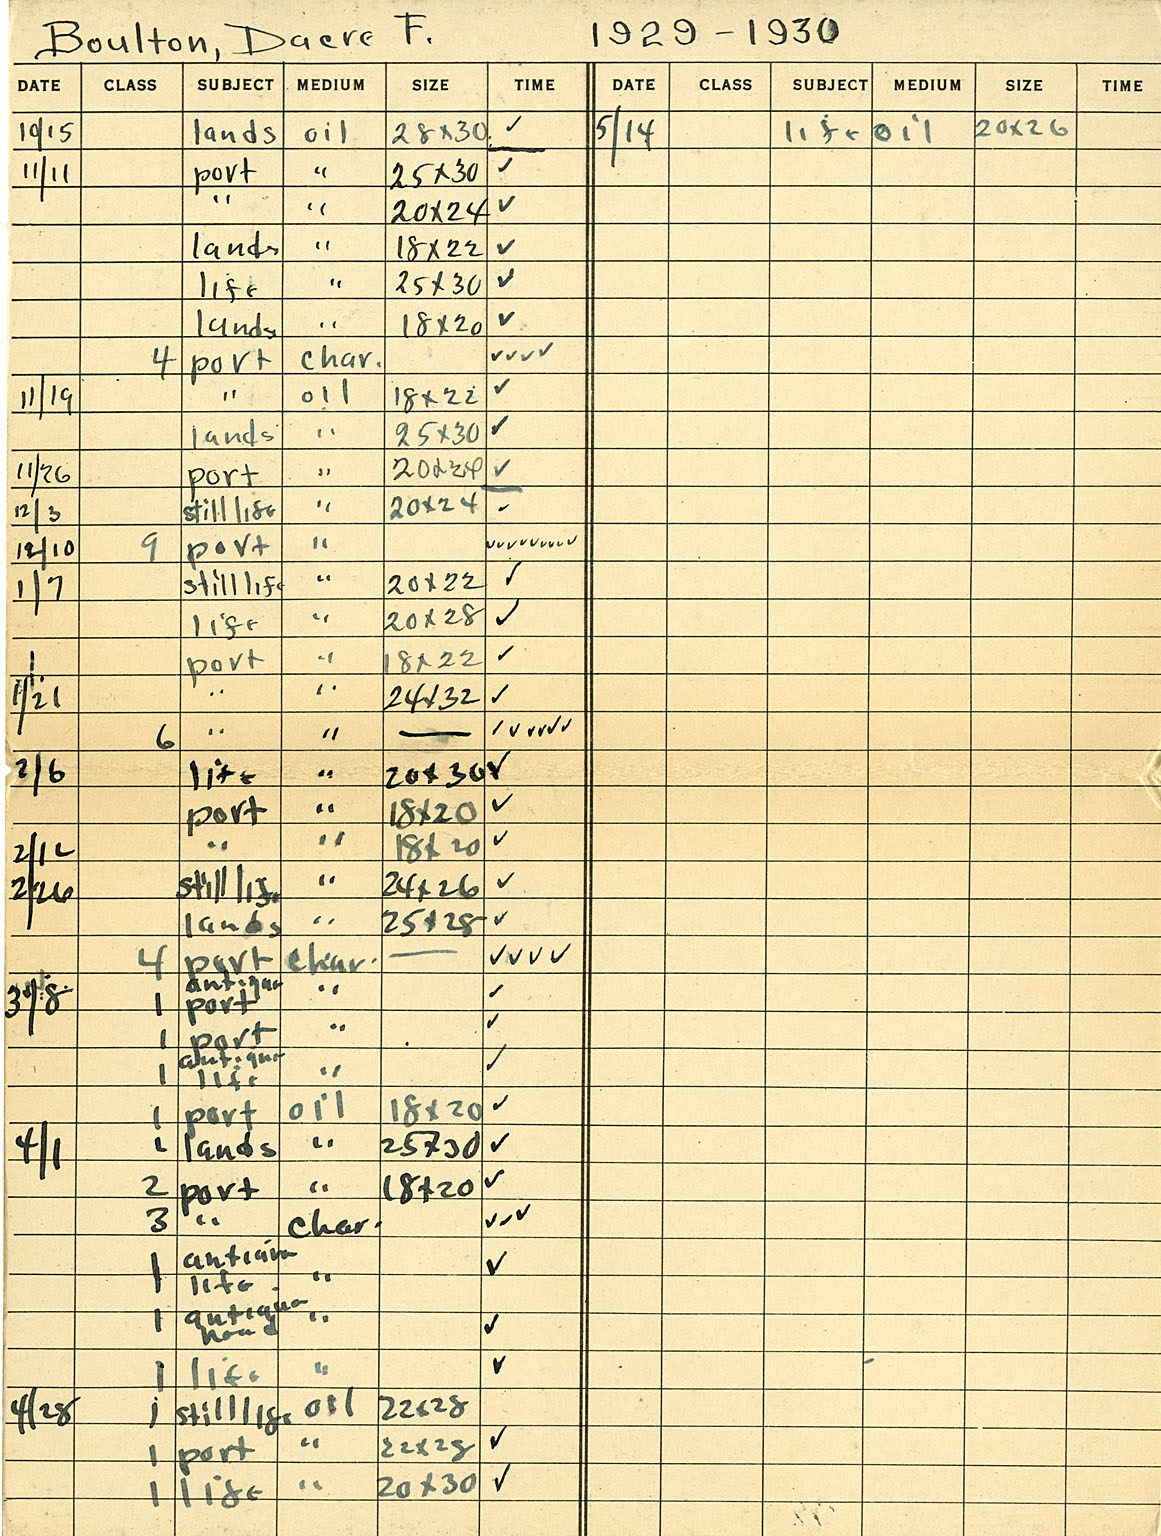 Boulton, Dacre F. 1929 - 1930
DATE CLASS SUBJECT MEDIUM SIZE TIME DATE CLASS SUBJECT MEDIUM SIZE TIME
10/15 lands oil 28x30 ✓ 5/14 life oil 20x26
11/11 port " 25x30 ✓
" " 20x24 ✓
lands " 18x22 ✓
life " 25x30 ✓
lands " 18x20 ✓
4 port char. ✓✓✓✓
11/19 " oil 18x22 ✓
lands " 25x30 ✓
11/26 port " 20x24 ✓
12/3 still life " 20x24 ✓
12/10 9 port " ✓✓✓✓✓✓✓✓✓
1/7 still life " 20x22 ✓
life " 20x28 ✓
port " 18x22 ✓
1/21 " " 24x32 ✓
6 " " — ✓✓✓✓✓✓
2/6 life " 20x30 ✓
port " 18x20 ✓
2/12 " " 18x20 ✓
2/26 still life " 24x26 ✓
lands " 25x28 ✓
4 port char. — ✓✓✓✓
3/18 1 antique port " ✓
1 port " ✓
1 antique life " ✓
1 port oil 18x20 ✓
4/1 1 lands " 25x30 ✓
2 port " 18x20 ✓
3 " char. ✓✓✓
1 antique life " ✓
1 antique head " ✓
1 life " ✓
4/28 1 still life oil 22x28
1 port " 22x28 ✓
1 life " 20x30 ✓